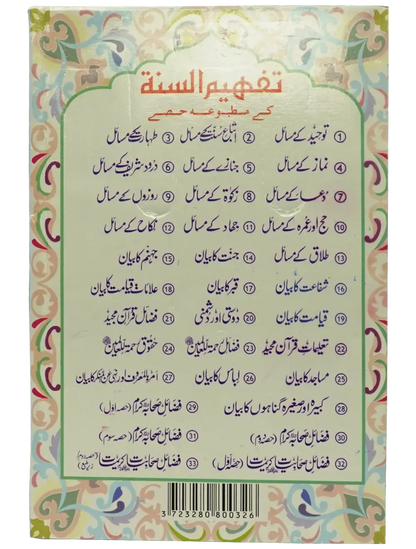 تفہیم السنۃ
کے مطبوعہ حصے
① توحید کے مسائل ② اتباع سنت کے مسائل ③ طہارت کے مسائل
④ نماز کے مسائل ⑤ جنازے کے مسائل ⑥ درود شریف کے مسائل
⑦ دعا کے مسائل ⑧ زکوٰۃ کے مسائل ⑨ روزوں کے مسائل
⑩ حج اور عمرہ کے مسائل ⑪ جہاد کے مسائل ⑫ نکاح کے مسائل
⑬ طلاق کے مسائل ⑭ جنت کا بیان ⑮ جہنم کا بیان
⑯ شفاعت کا بیان ⑰ قبر کا بیان ⑱ علامات قیامت کا بیان
⑲ قیامت کا بیان ⑳ دوستی اور دشمنی ㉑ فضائل قرآن مجید
㉒ تعلیمات قرآن مجید ㉓ فضائل رحمۃ للعالمین ㉔ حقوق رحمۃ للعالمین
㉕ مساجد کا بیان ㉖ لباس کا بیان ㉗ امر بالمعروف اور نہی عن المنکر کا بیان
㉘ کبیرہ اور صغیرہ گناہوں کا بیان ㉙ فضائل صحابہ کرام (حصہ اول)
㉚ فضائل صحابہ کرام (حصہ دوم) ㉛ فضائل صحابہ کرام (حصہ سوم)
㉜ فضائل صحابیات (حصہ اول) ㉝ فضائل صحابیات
3 723280 800326